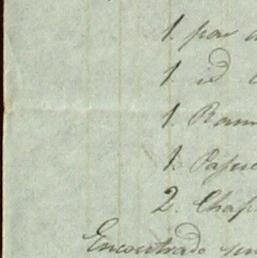 1. par
1 id
1 Ram
1. Pape
2. Chap
Encontrado